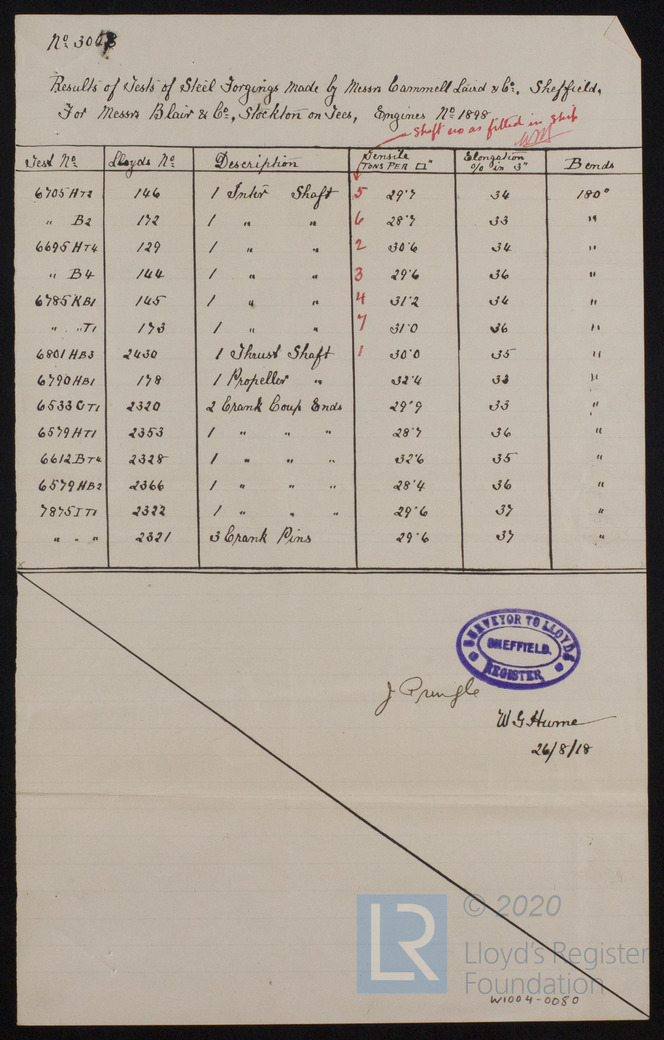 No. 3008
Results of Tests of Steel Forgings Made by Messrs Cammell Laird & Co., Sheffield,
For Messrs Blair & Co., Stockton on Tees, Engines No. 1898
Shaft no as filled in ship
WM
Test No. Lloyds No. Description Tensile TONS PER □" Elongation % in 3" Bends
6705 HT2 146 1 Inter Shaft 5 29.7 34 180°
" B2 172 1 " " 6 28.7 33 "
6695 HT4 129 1 " " 2 30.6 34 "
" B4 144 1 " " 3 29.6 36 "
6785 KB1 145 1 " " 4 31.2 34 "
" "T1 173 1 " " 7 31.0 36 "
6801 HB3 2430 1 Thrust Shaft 1 30.0 35 "
6790 HB1 178 1 Propellor " 32.4 33 "
6533 CT1 2320 2 Crank Coup Ends 29.9 33 "
6579 HT1 2353 1 " " " 28.7 36 "
6612 BT4 2328 1 " " " 32.6 35 "
6579 HB2 2366 1 " " " 28.4 36 "
7875 IT1 2322 1 " " " 29.6 37 "
" " " 2321 3 Crank Pins 29.6 37 "
SURVEYOR TO LLOYDS
SHEFFIELD.
REGISTER
J Pringle
W G Hume
26/8/18
LR
© 2020
Lloyd's Register
Foundation
W1004-0080